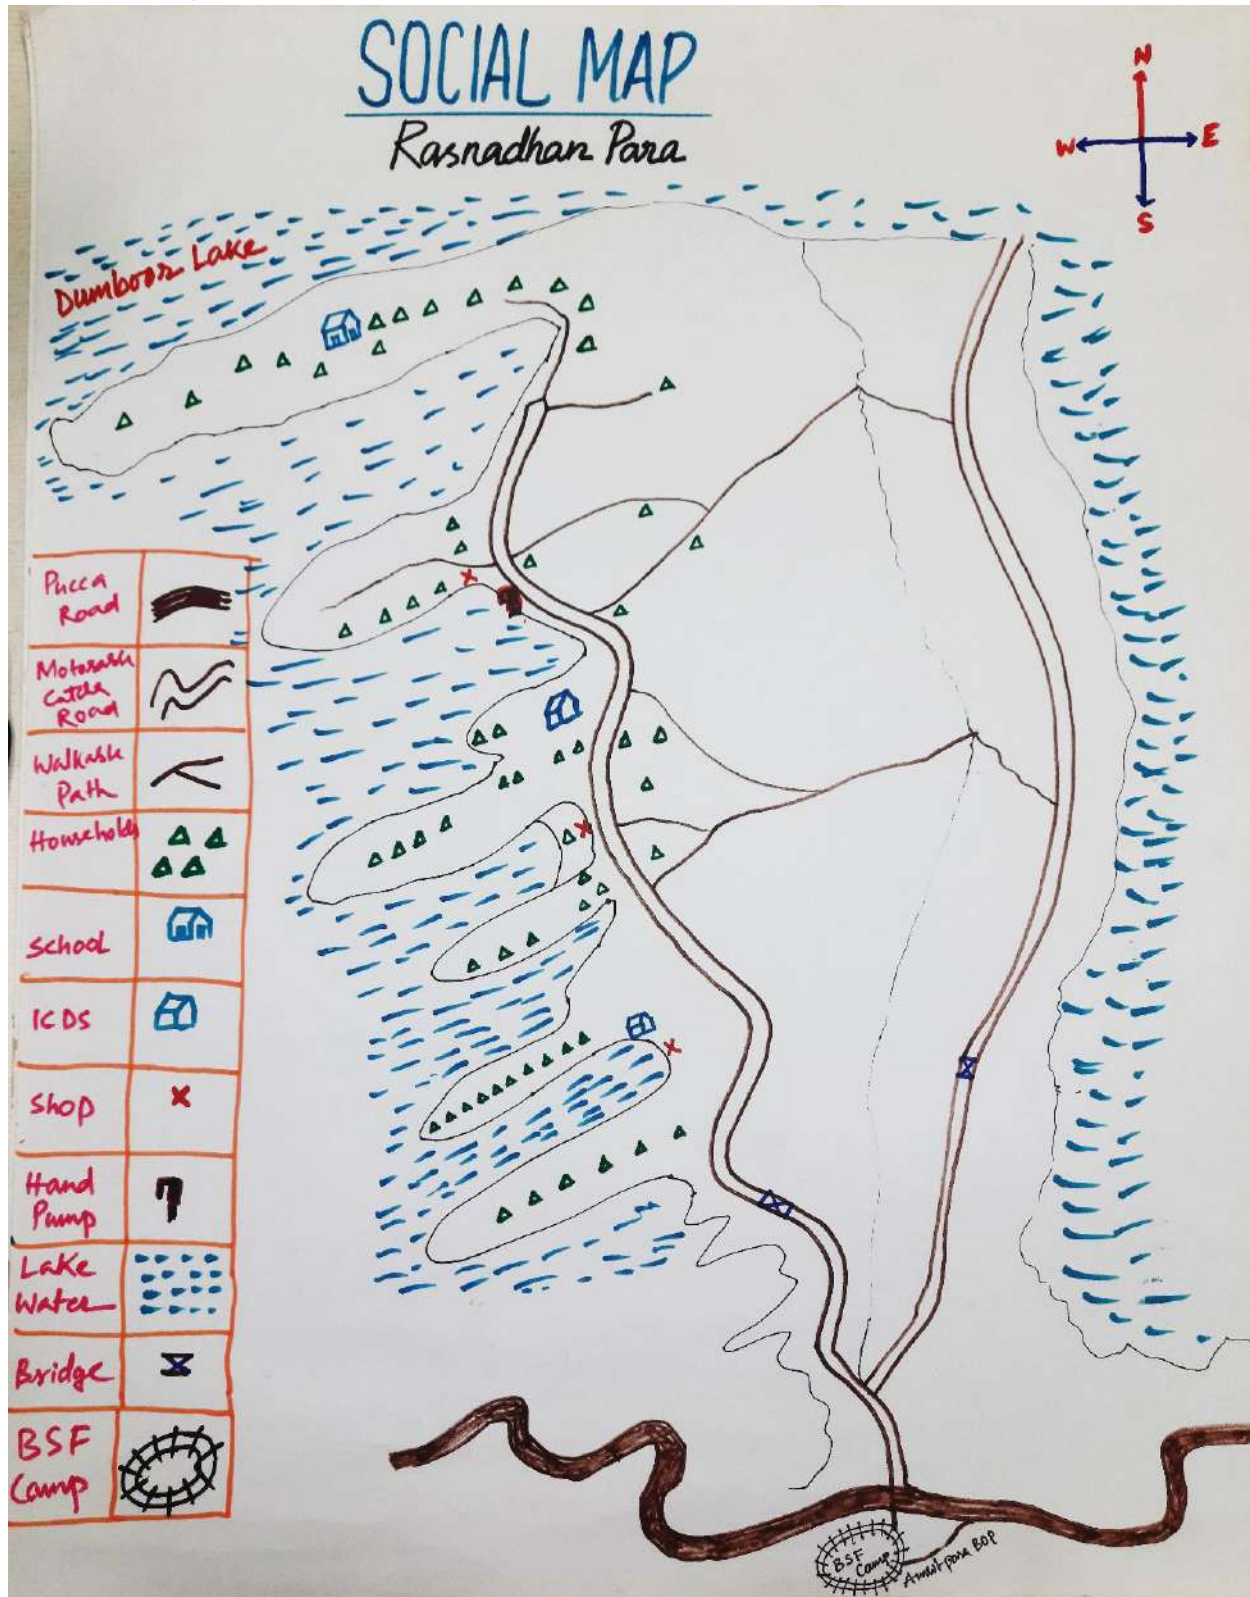 SOCIAL MAP
Rasnadhan Para
N
W E
S
Dumboor Lake
Pucca
Road
Road
Walkable
Path
Households
School
ICDS
Shop
Hand
Pump
Lake
Water
Bridge
BSF
Camp
BSF
Camp
para BOP